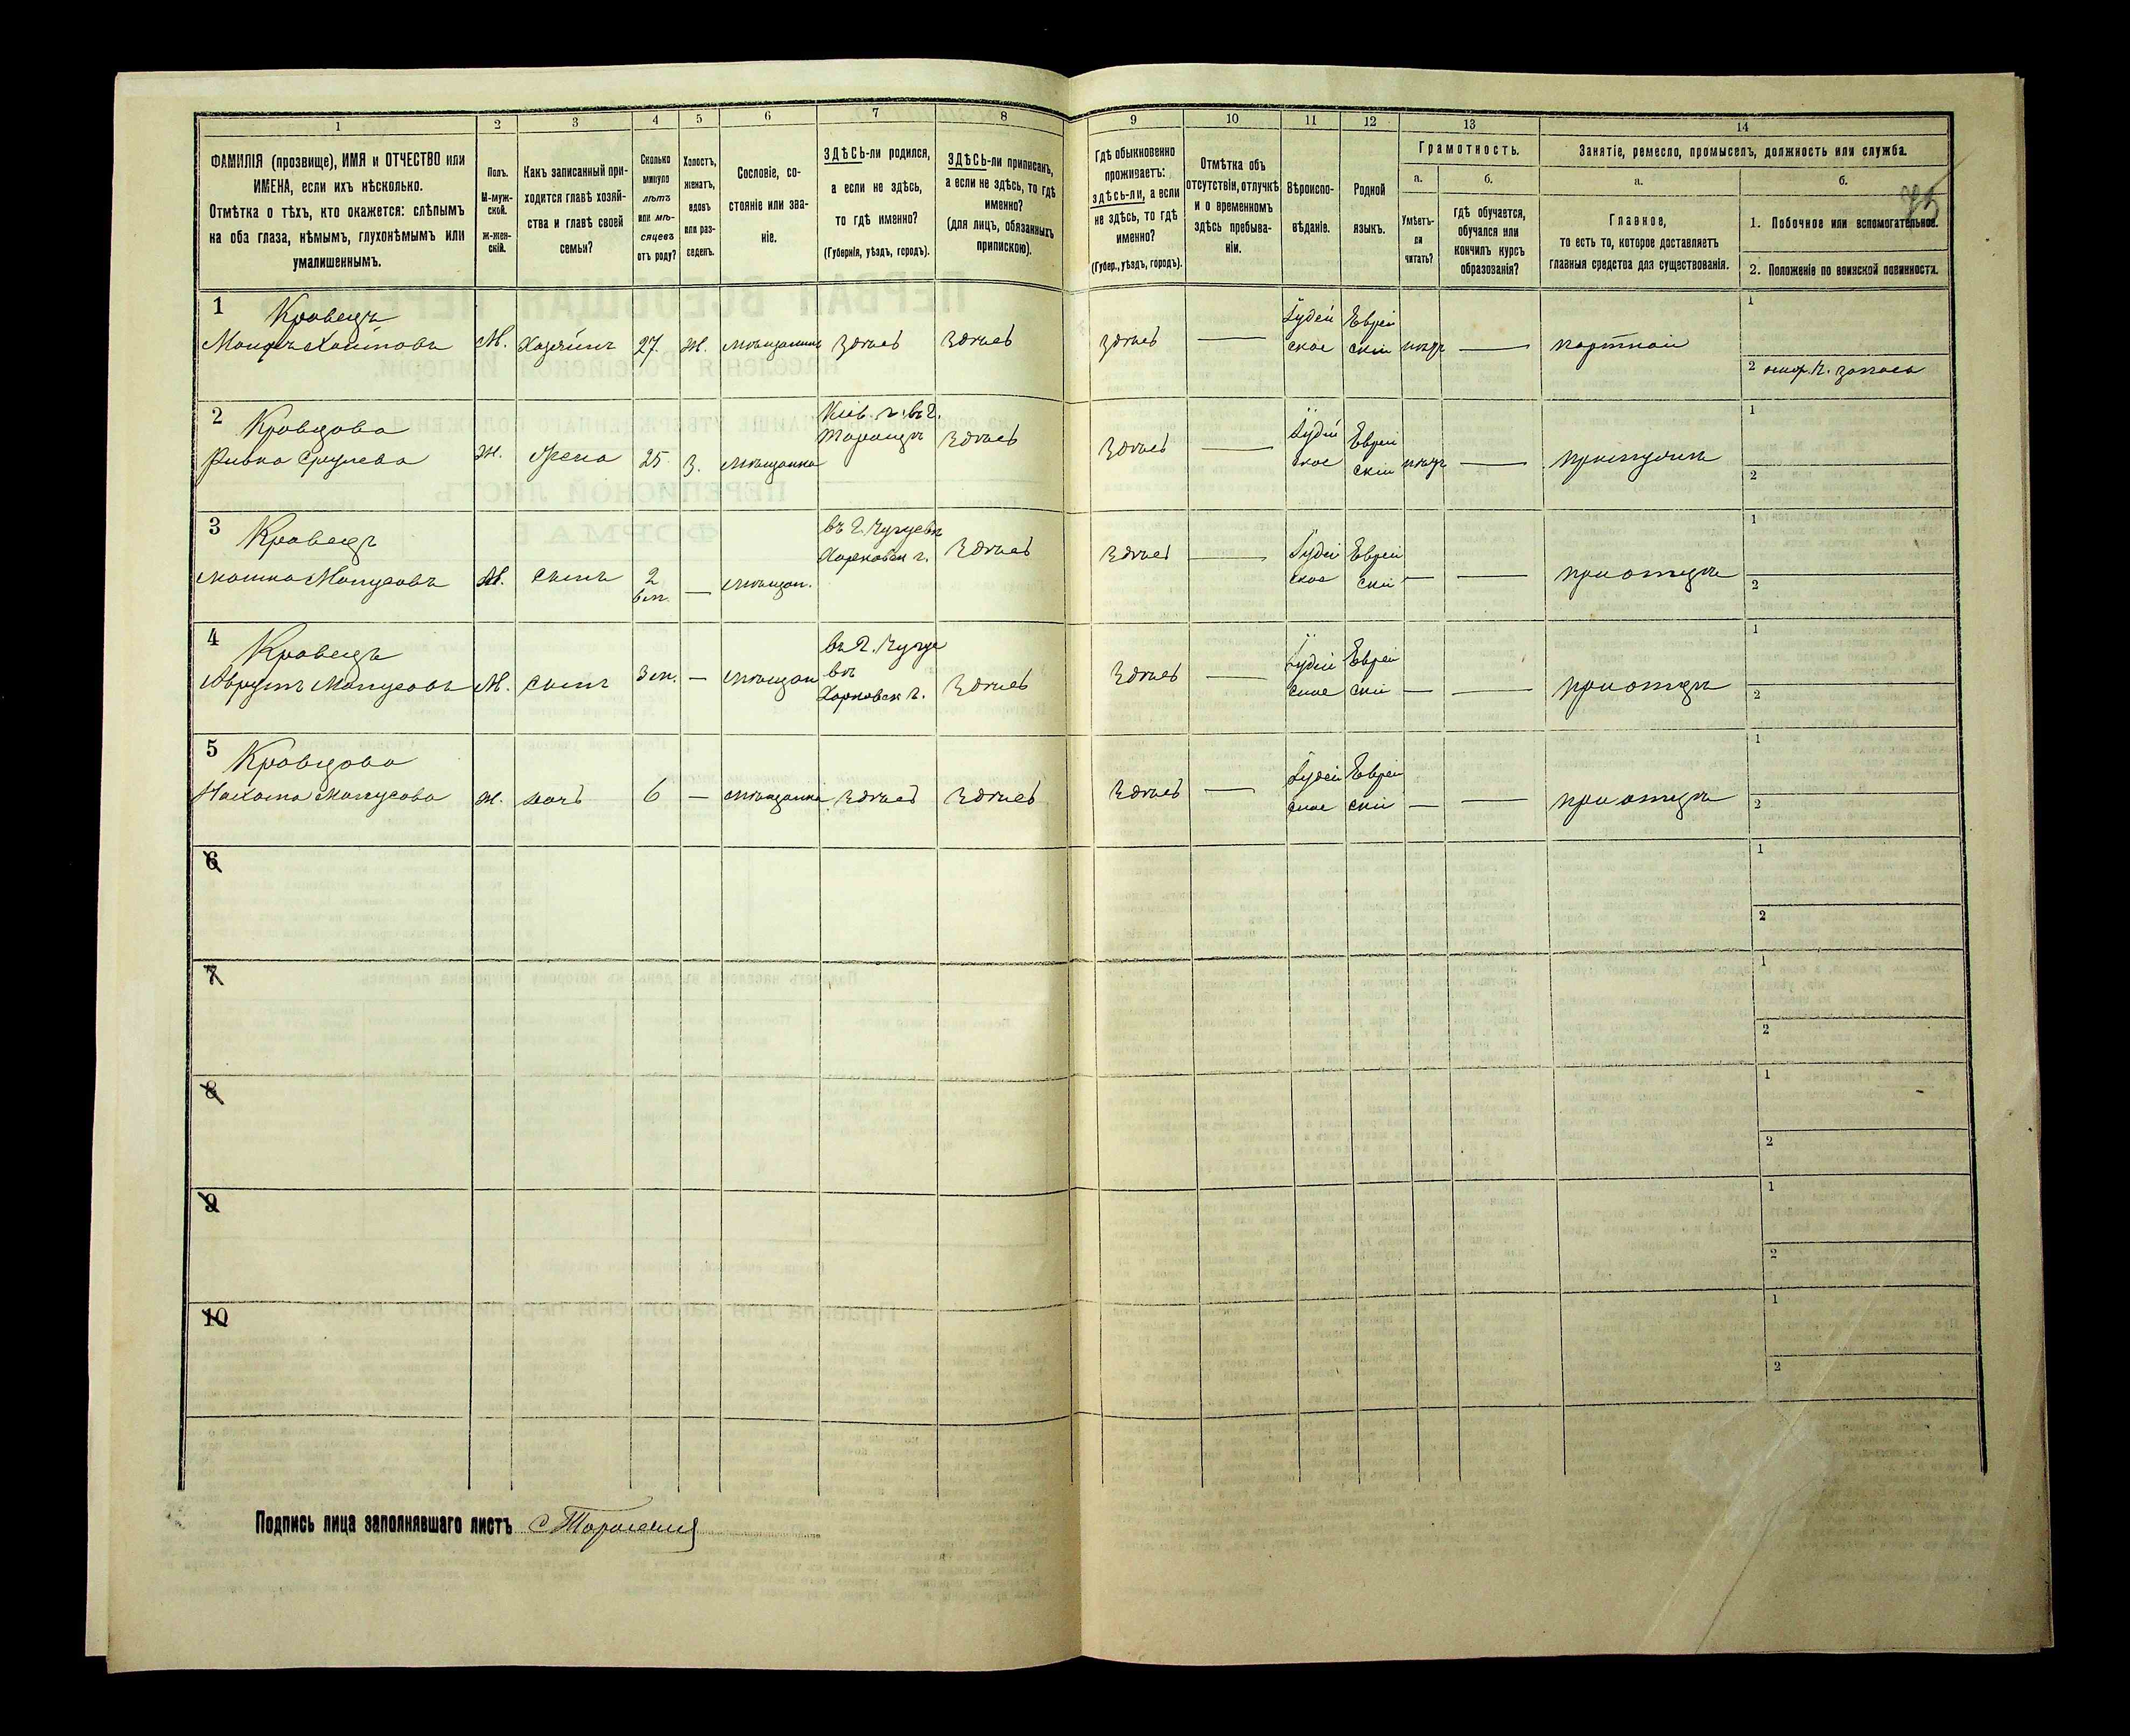 1 2 3 4 5 6 7 8 9 10 11 12 13 14
ФАМИЛІЯ (прозвище), ИМЯ и ОТЧЕСТВО или
ИМЕНА, если ихъ нѣсколько.
Отмѣтка о тѣхъ, кто окажется: слѣпымъ
на оба глаза, нѣмымъ, глухонѣмымъ или
умалишеннымъ.
Полъ.
М-муж-
ской.
ж-жен-
скій.
Какъ записанный при-
ходится главѣ хозяй-
ства и главѣ своей
семьи?
Сколько
минуло
лѣтъ
или мѣ-
сяцевъ
отъ роду?
Холостъ,
женатъ,
вдовъ
или раз-
веденъ.
Сословіе, со-
стояніе или зва-
ніе.
ЗДѢСЬ-ли родился,
а если не здѣсь,
то гдѣ именно?
(Губернія, уѣздъ, городъ).
ЗДѢСЬ-ли приписанъ,
а если не здѣсь, то гдѣ
именно?
(для лицъ, обязанныхъ
припискою).
Гдѣ обыкновенно
проживаетъ:
здѣсь-ли, а если
не здѣсь, то гдѣ
именно?
(Губер., уѣздъ, городъ).
Отмѣтка объ
отсутствіи, отлучкѣ
и о временномъ
здѣсь пребыва-
ніи.
Вѣроиспо-
вѣданіе.
Родной
языкъ.
Грамотность.
а.
Умѣетъ-
ли
читать?
б.
гдѣ обучается,
обучался или
кончилъ курсъ
образованія?
Занятіе, ремесло, промыселъ, должность или служба.
а.
Главное,
то есть то, которое доставляетъ
главныя средства для существованія.
б.
1. Побочное или вспомогательное.
2. Положеніе по воинской повинности.
1 Кравецъ Іудей Еврей 1
М. Хозяинъ 27. Ж. мѣщанинъ здѣсь здѣсь здѣсь — ское скій нѣтъ — портной
2 запаса
2 Кравцова Кіев. г. въ г. Іудей Еврей 1
Таращѣ здѣсь здѣсь —
Ривка Срулева Ж. Жена 25 З. мѣщанка ское скій нѣтъ — при мужѣ
2
3 Кравецъ въ г. Чугуевѣ Іудей Еврей 1
Харковск г. здѣсь здѣсь —
М. сынъ 2 — мѣщан. ское скій — — при отцѣ
2
4 Кравецъ въ г. Чугуе Іудей Еврей 1
М. сынъ 3 м. — мѣщан вѣ здѣсь здѣсь — ское скій — — при отцѣ
Харковск г.
2
5 Кравцова Іудей Еврей 1
ж. дочь 6 — мѣщанка здѣсь здѣсь здѣсь — ское скій — — при отцѣ
2
6 1
2
7 1
2
8 1
2
9 1
2
10 1
2
Подпись лица заполнявшаго листъ